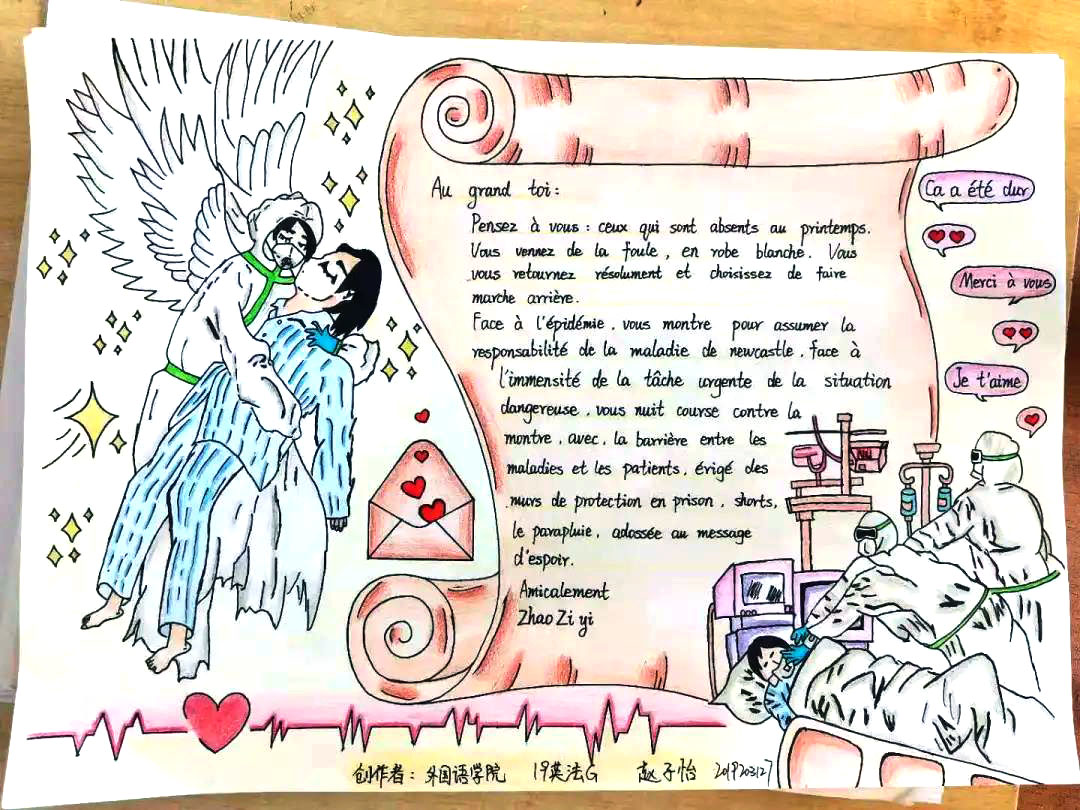 Au grand toi:
Pensez à vous: ceux qui sont absents au printemps.
Vous vennez de la foule, en robe blanche. Vous
vous retournez résolument et choisissez de faire
marche arrière.
Face à l'épidémie, vous montre pour assumer la
responsabilité de la maladie de newcastle, face à
l'immensité de la tâche urgente de la situation
dangereuse, vous nuit course contre la
montre, avec, la barrière entre les
maladies et les patients, érigé des
murs de protection en prison, shorts,
le parapluie, adossée au message
d'espoir.
Amicalement
Zhao Zi yi
Ca a été dur
Merci à vous
Je t'aime
创作者: 外国语学院 19英法G 赵子怡 201903127